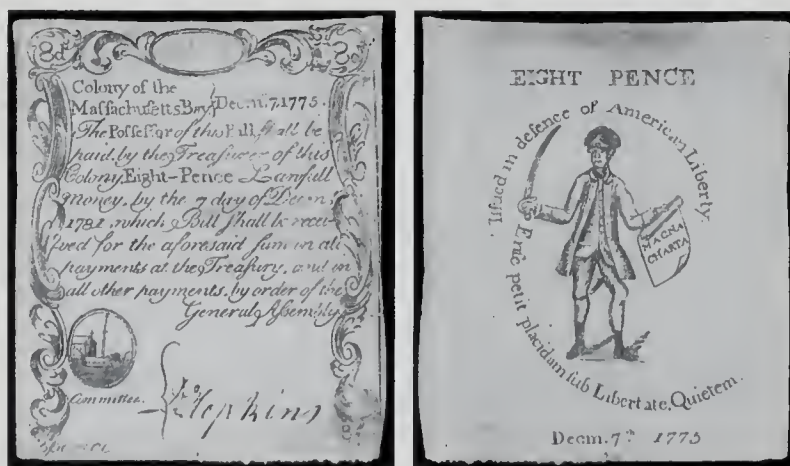 8d
Colony of the
Massachusetts Bay } Decm. 7. 1775.
The Possessor of this Bill, shall be
paid, by the Treasurer of this
Colony, Eight-Pence Lawfull
money, by the 7 day of Decm.
1781, which Bill shall be recei-
ved for the aforesaid sum in all
payments at the Treasury, and in
all other payments, by order of the
General Assembly
Committee. Hopkins
EIGHT PENCE
Issued in defence of American Liberty.
Ense petit placidam sub Libertate, Quietem.
MAGNA
CHARTA
Decm. 7th 1775